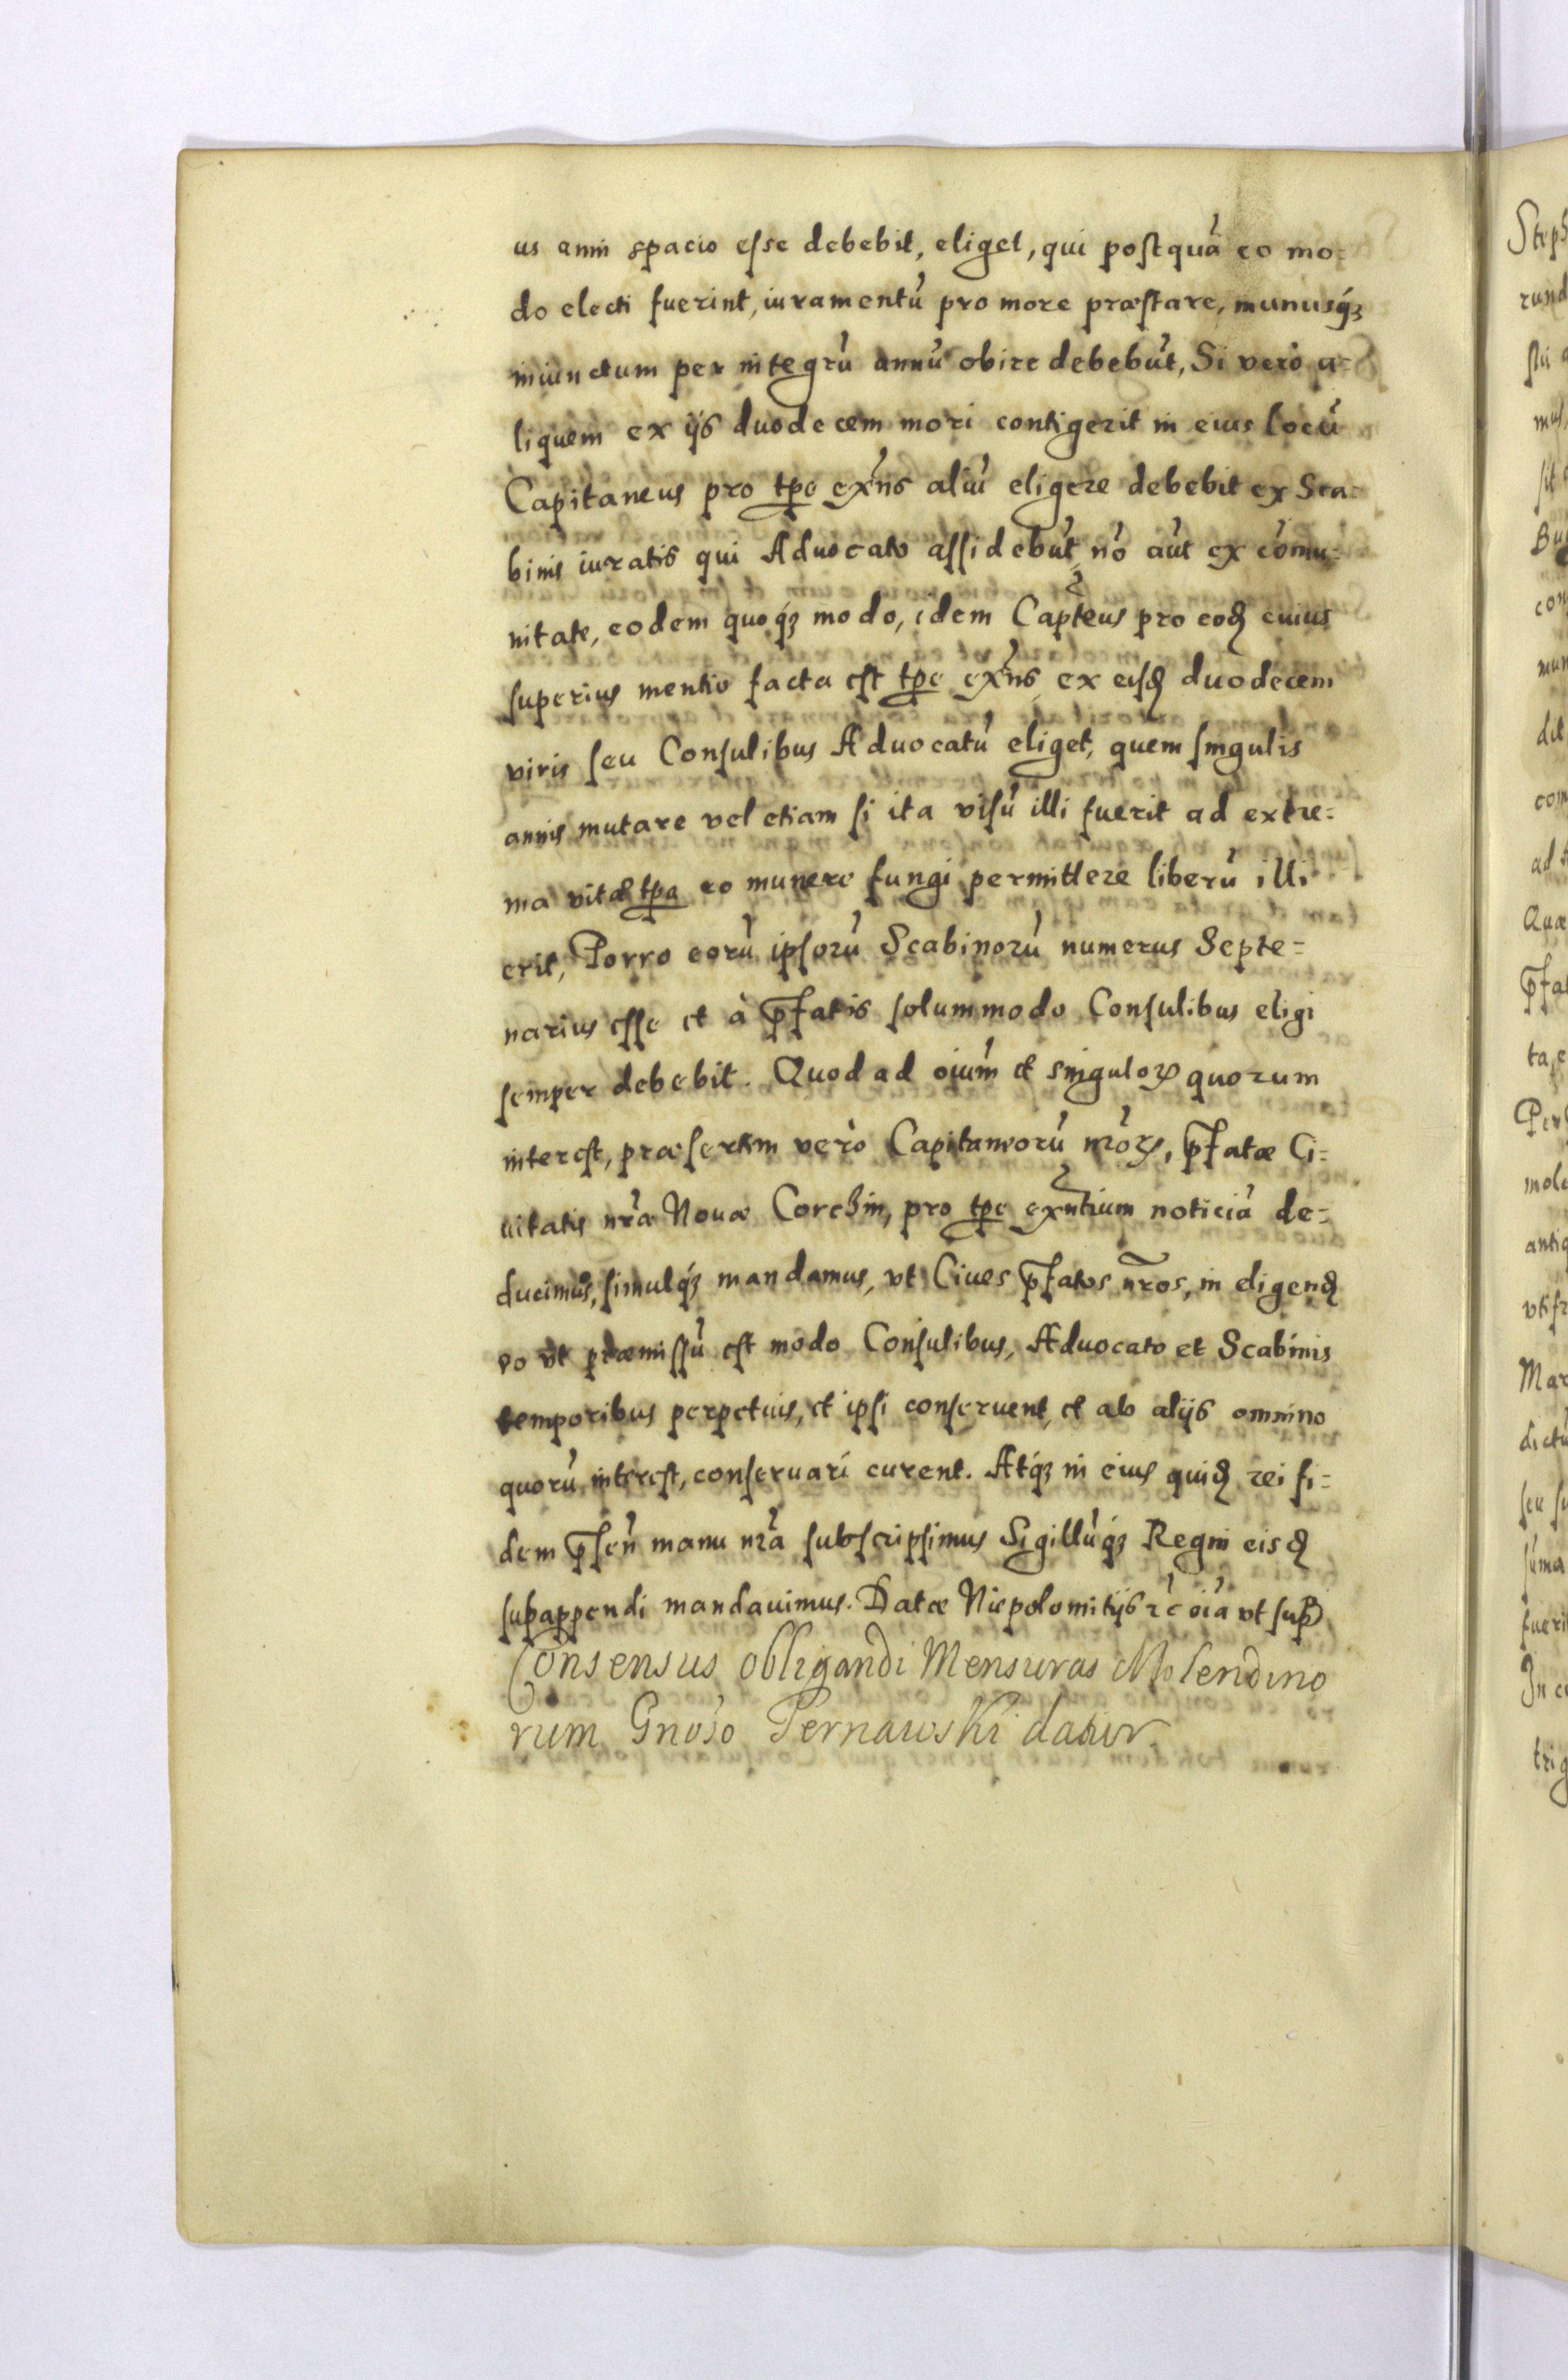 us anni spacio esse debebit, eliget, qui postquã eo mo=
do electi fuerint, iuramentũ pro more præstare, munusq́3
iniunctum per integrũ annũ obire debebũt, Si verò a=
liquem ex ijs duodecem mori contigerit in eius locũ
Capitaneus pro tp̱e exñs aliũ eligere debebit ex Sca=
binis iuratis qui Aduocato assidebũt, nõ aũt ex cõmu=
nitate, eodem quoq́3 modo, idem Capt̃eus pro eoȡ cuius
superius mentio facta est tp̱e exñs ex eisȡ duodecem
viris seu Consulibus Aduocatũ eliget, quem singulis
annis mutare vel etiam si ita visũ illi fuerit ad extre=
ma vitæ tp̱a eo munere fungi permittere liberũ illi
erit, Porro eorũ ipsorũ Scabinorũ numerus Septe=
narius esse et à p̄fatis solummodo Consulibus eligi
semper debebit. Quod ad oiũm et singuloꝝ quorum
interest, præsertim verò Capitaneorũ nr̃oꝝ, p̄fatæ Ci=
uitatis nr̃æ Nouæ Corchin, pro tp̱e exñtium noticiã de=
ducimus, simulq́3 mandamus, vt Ciues p̄fatos nr̃os, in eligenȡ
eo vt præmissũ est modo Consulibus, Aduocato et Scabinis
temporibus perpetuis, et ipsi conseruent, et ab alijs omnino
quorũ interest, conseruari curent. Atq́3 in eius quiȡ rei fi=
dem p̄señ manu nr̃a subscripsimus Sigillũq́3 Regni eisȡ
subappendi mandauimus. Datæ Niepolomitijs ꝛc̃ oĩa vt sup̱
Consensus obligandi Mensuras Molendino
rum Gnoso Pernawski datur.
Steph
rund